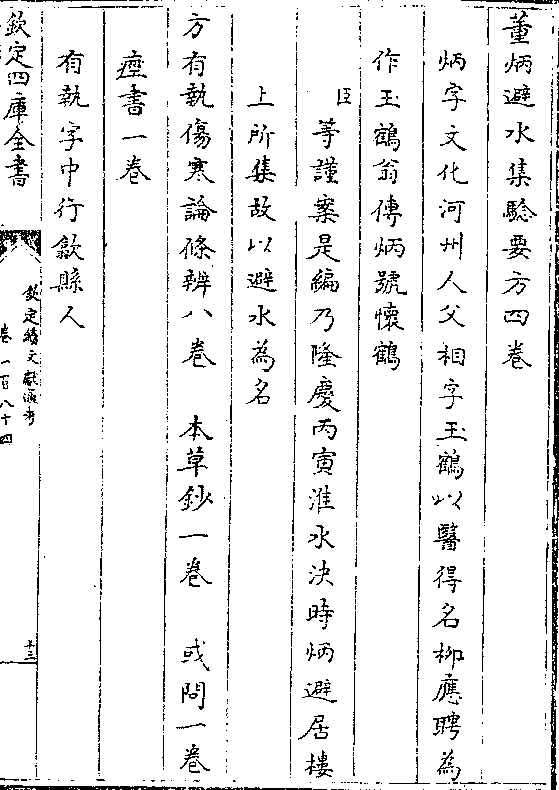 董炳避水集驗要方四卷
炳字文化河州人父相字玉鶴以醫得名柳應聘為
作玉鶴翁傳炳號懷鶴
臣等謹案是編乃隆慶丙寅淮水決時炳避居樓
上所集故以避水為名
方有執傷寒論條辨八卷 本草鈔一卷 或問一卷
痙書一卷
有執字中行歙縣人
欽定四庫全書
欽定續文獻通考
卷一百八十四
十三